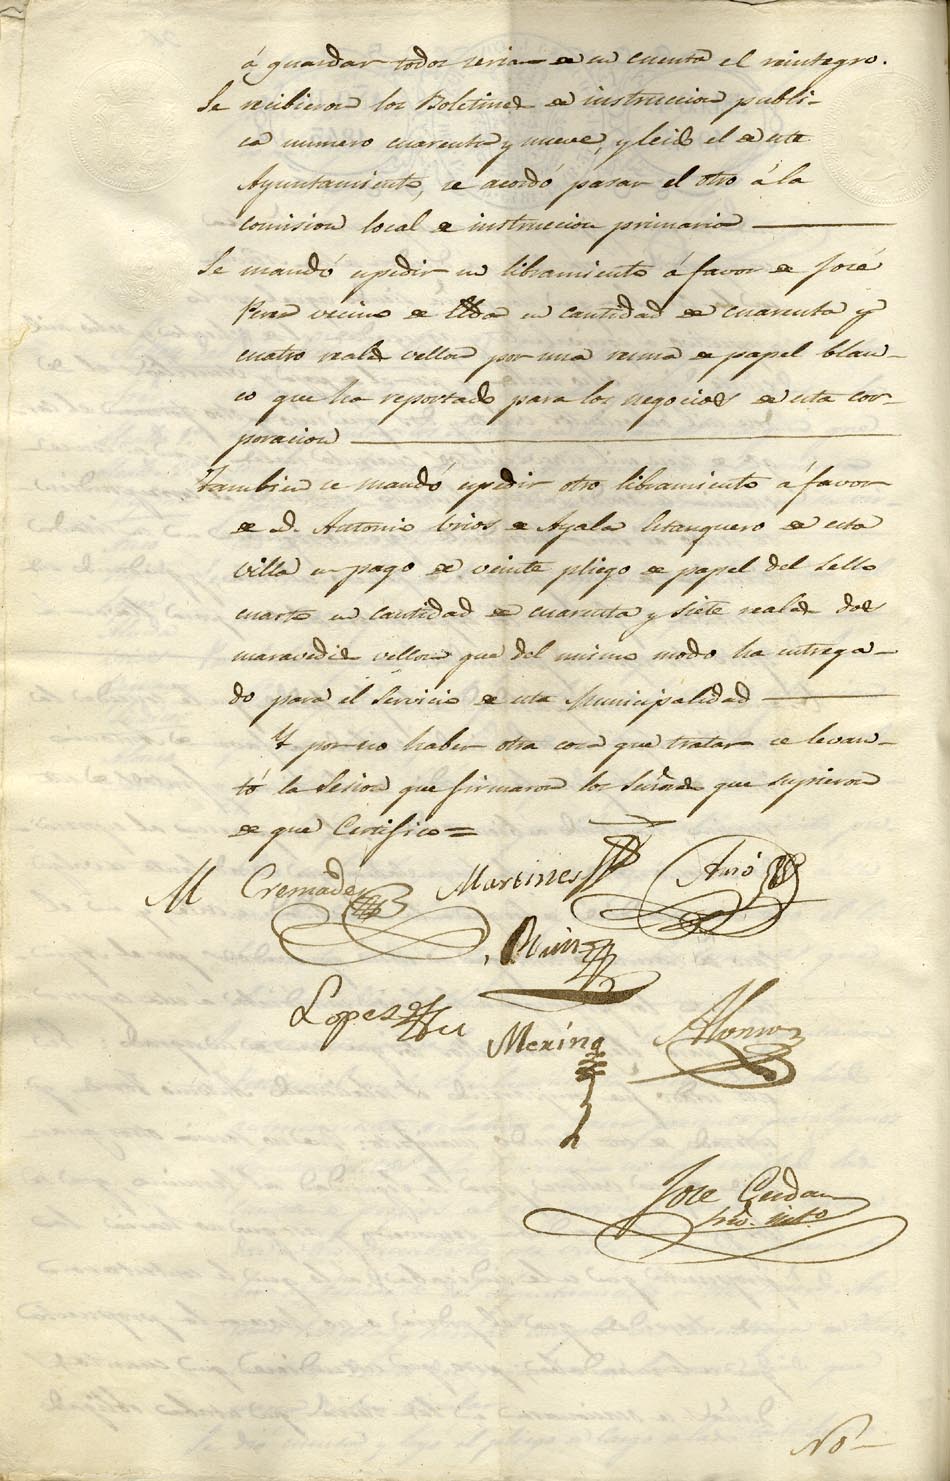 á guardar todos seria de su cuenta el reintegro.
Se recibieron los Boletines de instruccion publi-
ca numero cuarenta y nueve, y leido el de este
Ayuntamiento, se acordó pasar el otro á la
comision local de instruccion primaria
Se mandó espedir un libramiento á favor de José
vecino de Elda en cantidad de cuarenta y
cuatro reales vellon por una resma de papel blan-
co que ha reportado para los negocios de esta cor-
poracion
Tambien se mandó espedir otro libramiento á favor
de D. Antonio de Ayala Estanquero de esta
villa en pago de veinte pliegos de papel del Sello
cuarto en cantidad de cuarenta y siete reales dos
maravedis vellon que del mismo modo ha entrega-
do para el Servicio de esta Municipalidad
Y por no haber otra cosa que tratar se levan-
tó la Sesion que firmaron los Señores que supieron
de que Certifico=
M Cremades Martines Amó
Lopes
Mexina Alonso
Jose Cerdan
No-